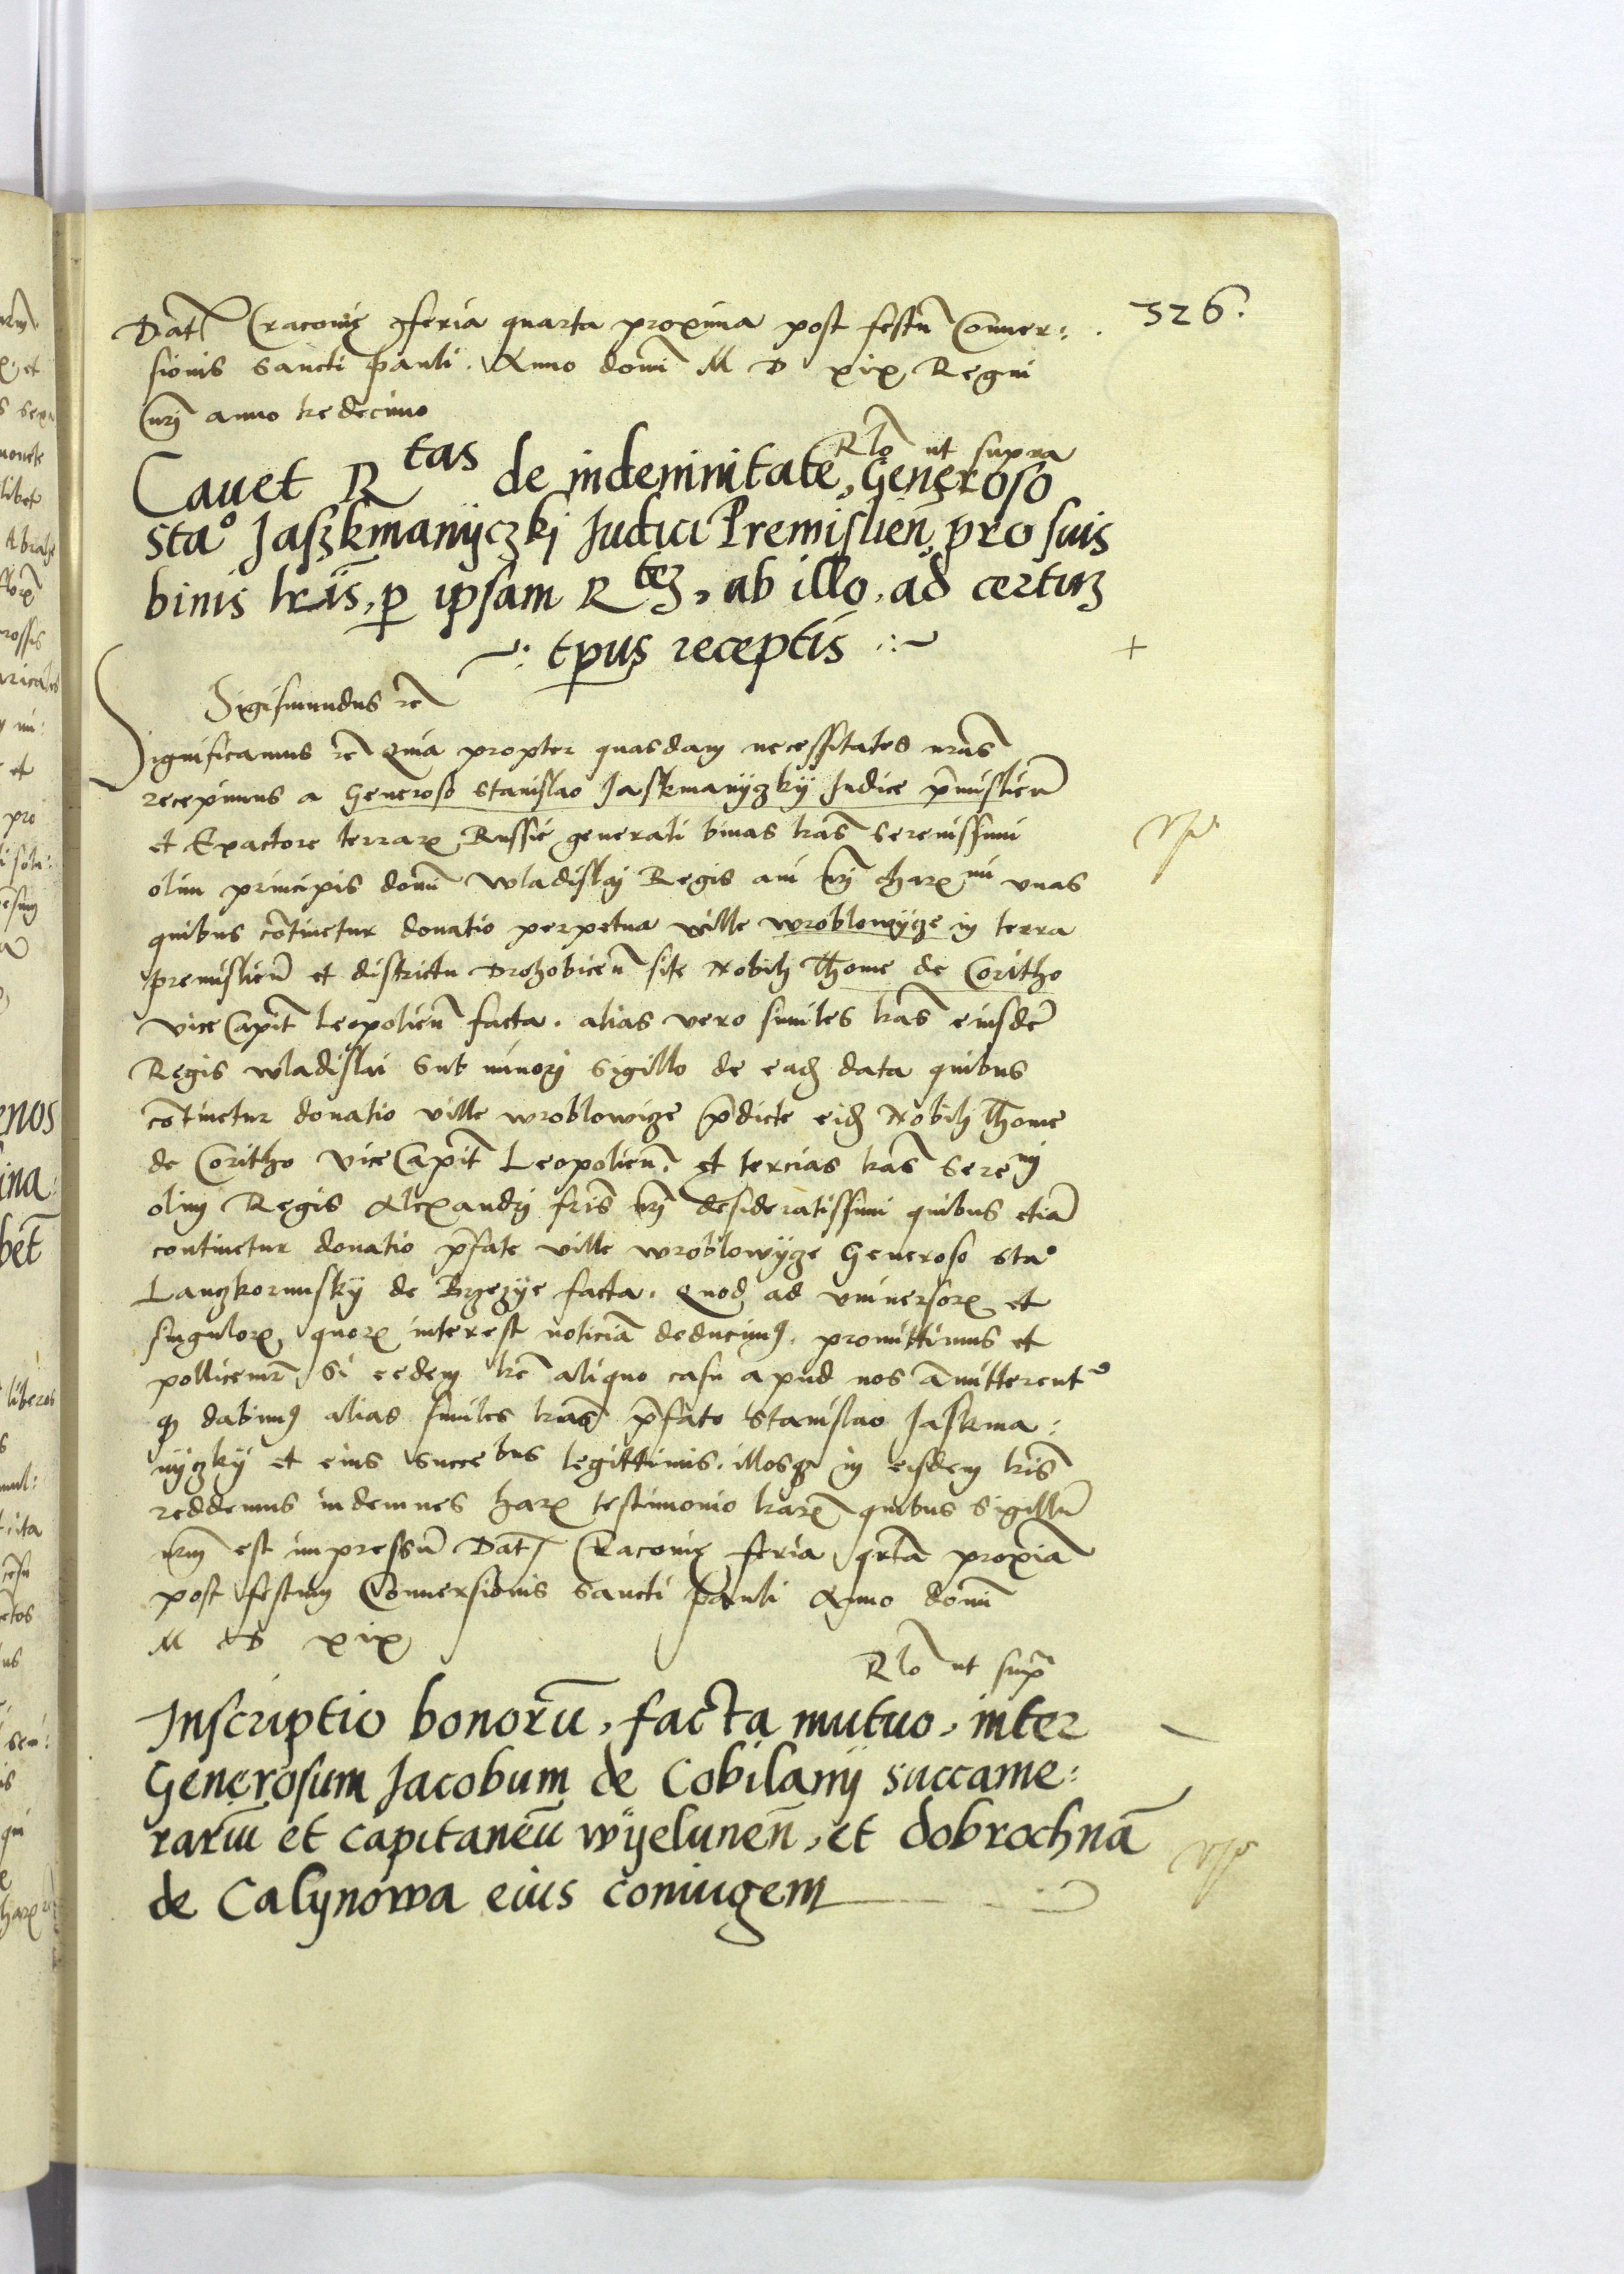 326.
Dat Cracovię feria quarta proxima post festū Conver:
sionis Sancti Pauli. Anno domī M D xix Regni
nrī anno tredecimo
Rlō ut supra
Cavet Rtas de indemnitate, Generoso
Sta° Jaszkmanÿczkj Judici Premislień, pro suis
binis lrīs, p ipsam Rtēz, ab illo, ad certum
tpus receptis
Sigismundus rē
Significamus rē Quia propter quasdam necessitates nrās
recepimus a Generoso Stanislao Jaskmanÿczkÿ Judice pmislień
et Exactore terrarx Russie generali binas lrās Serenissimi
olim principis domī Wladislaj Regis avi nrī charxmi unas
quibus cōtinetur donatio perpetua ville wroblowÿcze in terra
premislień et districtu Drohobiceń site Nobilj Thome de Coritho
viceCapit Leopolień facta. alias vero similes lrās eiusdē
Regis wladislai sub minorj Sigillo de eadj data quibus
cōtinetur donatio ville wroblowicze pdicte eidj Nobilj Thome
de Coritho viceCapit Leopolień. et tercias lrās Serenj
olim Regis Alexandrj frīs nrī desideratissimi quibus etiā
continetur donatio pfate ville wroblowÿcze Generoso Sta°
Lanczkorunskÿ de Brzezÿe facta. Quod ad universorx et
singulorx, quorx interest noticiā deducimꝰ. promittimus et
pollicemr Si eedem lrē aliquo casu apud nos āmitterentᵉ
qđ dabimꝰ alias similes lrās pfato Stanislao Jaskma:
nÿczkÿ et eius Succebus legittimis. illosqꝫ in eisdem lrīs
reddemus indemnes harx testimonio lrarx quibus Sigillū
nrm est impressū Dat Cracovię feria qrta proxīa
post festum Conversionis Sancti Pauli Anno domī
M D xix
Rlō ut supª
Inscriptio bonorū, facta mutuo, inter
Generosum Jacobum de Cobilanÿ succame:
rariū et capitaneū wÿeluneń, et dobrochnā
de Calynowa eius coniugem